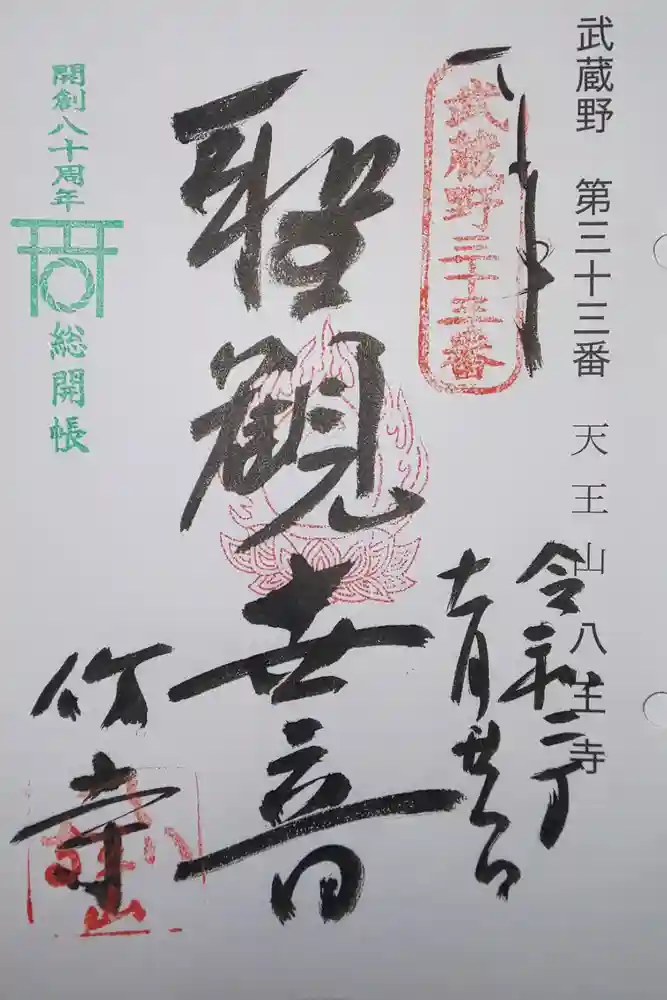 武蔵野 第三十三番 天王山 八王寺
武蔵野三十三番
令和二丁
十月廿一日
聖観世音
開創八十周年
総開帳
竹寺